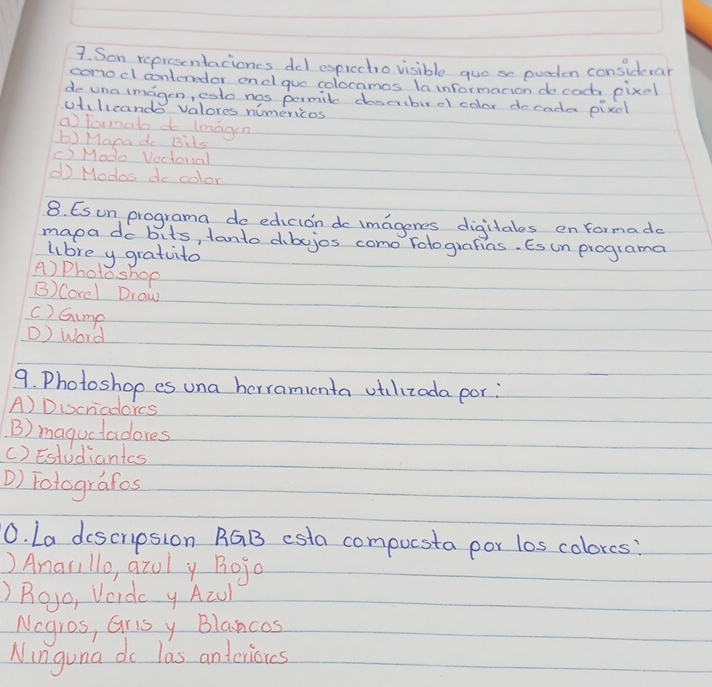 7. Son representaciones del esprectro visible que se pueden considerar
como el contenedor en el que colocamos la informacion de cada pixel
de una imágen, esto nos permite describir el color de cada pixel
utilicando valores númericos
a) Formato de Imágen
b) Mapa de Bits
c) Modo Vectorial
d) Modos de color
8. Es un programa de edición de imágenes digitales en forma de
mapa de bits, tanto dibujos como fotografías. Es un programa
libre y gratuito
A) Photoshop
B) Corel Draw
C) Gimp
D) Word
9. Photoshop es una herramienta utilizada por:
A) Diseñadores
B) maquetadores
C) Estudiantes
D) Fotográfos
0. La descripsion RGB esta compuesta por los colores:
) Amarillo, azul y Rojo
) Rojo, Verde y Azul
Negros, Gris y Blancos
Ninguna de las anteriores